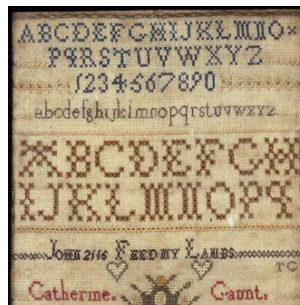 ABCDEFGHIJKLMNO
PQRSTUVWXYZ
1234567890
abcdefghijklmnopqrstuvwxyz
ABCDEFGH
IJKLMNOPQ
JOHN 21 16 FEED MY LAMBS
Catherine. Gaunt.